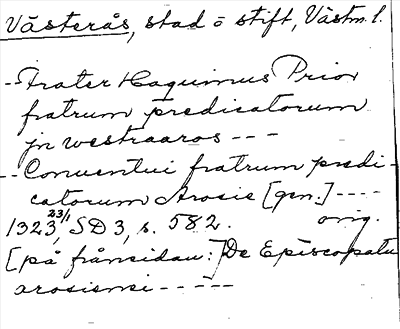 Västerås, stad o stift, Västm. l.
-- Frater Haquinus Prior
fratrum predicatorum
jn westraaros - - -
-- Conuentui fratrum predi-
catorum Arosie [gen.] - - - -
1323 23/1, SD 3, s. 582. orig.
[på frånsidan:] De Episcopatu
arosiensi - - - - -